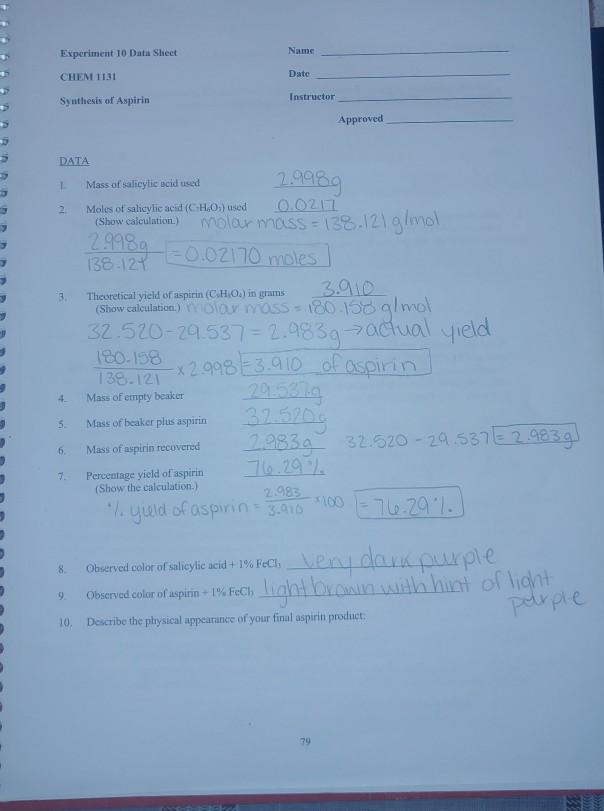 Experiment 10 Data Sheet
Name
CHEM 1131
Date
Synthesis of Aspirin
Instructor
Approved
DATA
1. Mass of salicylic acid used 2.998g
2. Moles of salicylic acid (C7H6O3) used 0.0217
(Show calculation.) molar mass = 138.121 g/mol
2.998g
138.121 = 0.02170 moles
3. Theoretical yield of aspirin (C9H8O4) in grams 3.910
(Show calculation.) molar mass = 180.158 g/mol
32.520 - 29.537 = 2.983g → actual yield
180.158
138.121 x 2.998 = 3.910 of aspirin
4. Mass of empty beaker 29.537g
5. Mass of beaker plus aspirin 32.520g
6. Mass of aspirin recovered 2.983g 32.520 - 29.537 = 2.983g
7. Percentage yield of aspirin 76.29%
(Show the calculation.)
% yield of aspirin = 2.983
3.910 x100 = 76.29%
8. Observed color of salicylic acid + 1% FeCl3 very dark purple
9. Observed color of aspirin + 1% FeCl3 light brown with hint of light
purple
10. Describe the physical appearance of your final aspirin product:
79